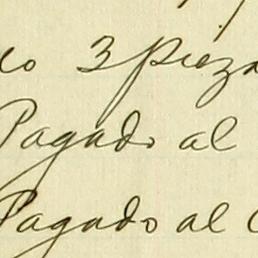 3 pieza
Pagado al
Pagado al